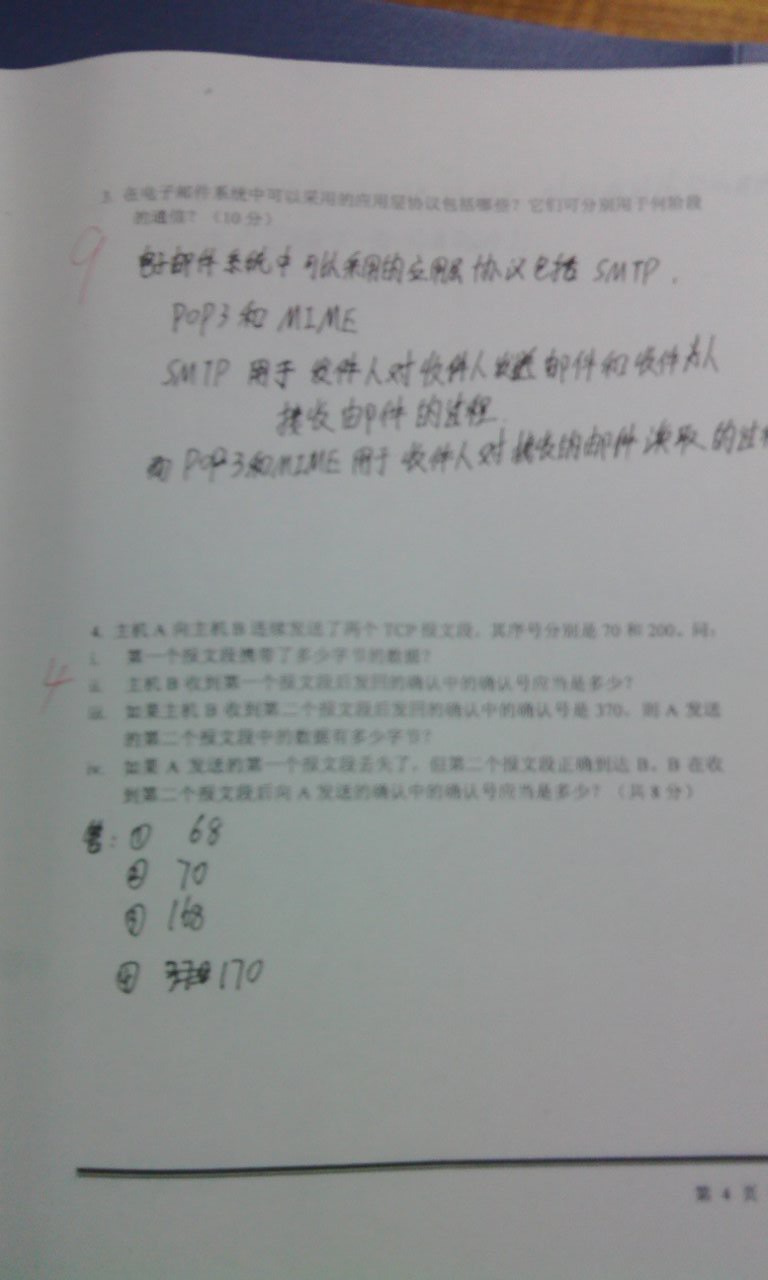 3. 在电子邮件系统中可以采用的应用层协议包括哪些？它们可分别用于何阶段
的通信？（10 分）
9
电子邮件系统中可以采用的应用层协议包括 SMTP .
POP3 和 MIME
SMTP 用于 发件人对收件人发送邮件和收件人
接收邮件的过程.
而 POP3和MIME 用于收件人对接收的邮件读取的过程
4. 主机 A 向主机 B 连续发送了两个 TCP 报文段，其序号分别是 70 和 200。问：
i. 第一个报文段携带了多少字节的数据？
4
ii. 主机 B 收到第一个报文段后发回的确认中的确认号应当是多少？
iii. 如果主机 B 收到第二个报文段后发回的确认中的确认号是 370，则 A 发送
的第二个报文段中的数据有多少字节？
iv. 如果 A 发送的第一个报文段丢失了，但第二个报文段正确到达 B。B 在收
到第二个报文段后向 A 发送的确认中的确认号应当是多少？（共 8 分）
答：① 68
② 70
③ 168
④ 170
第 4 页